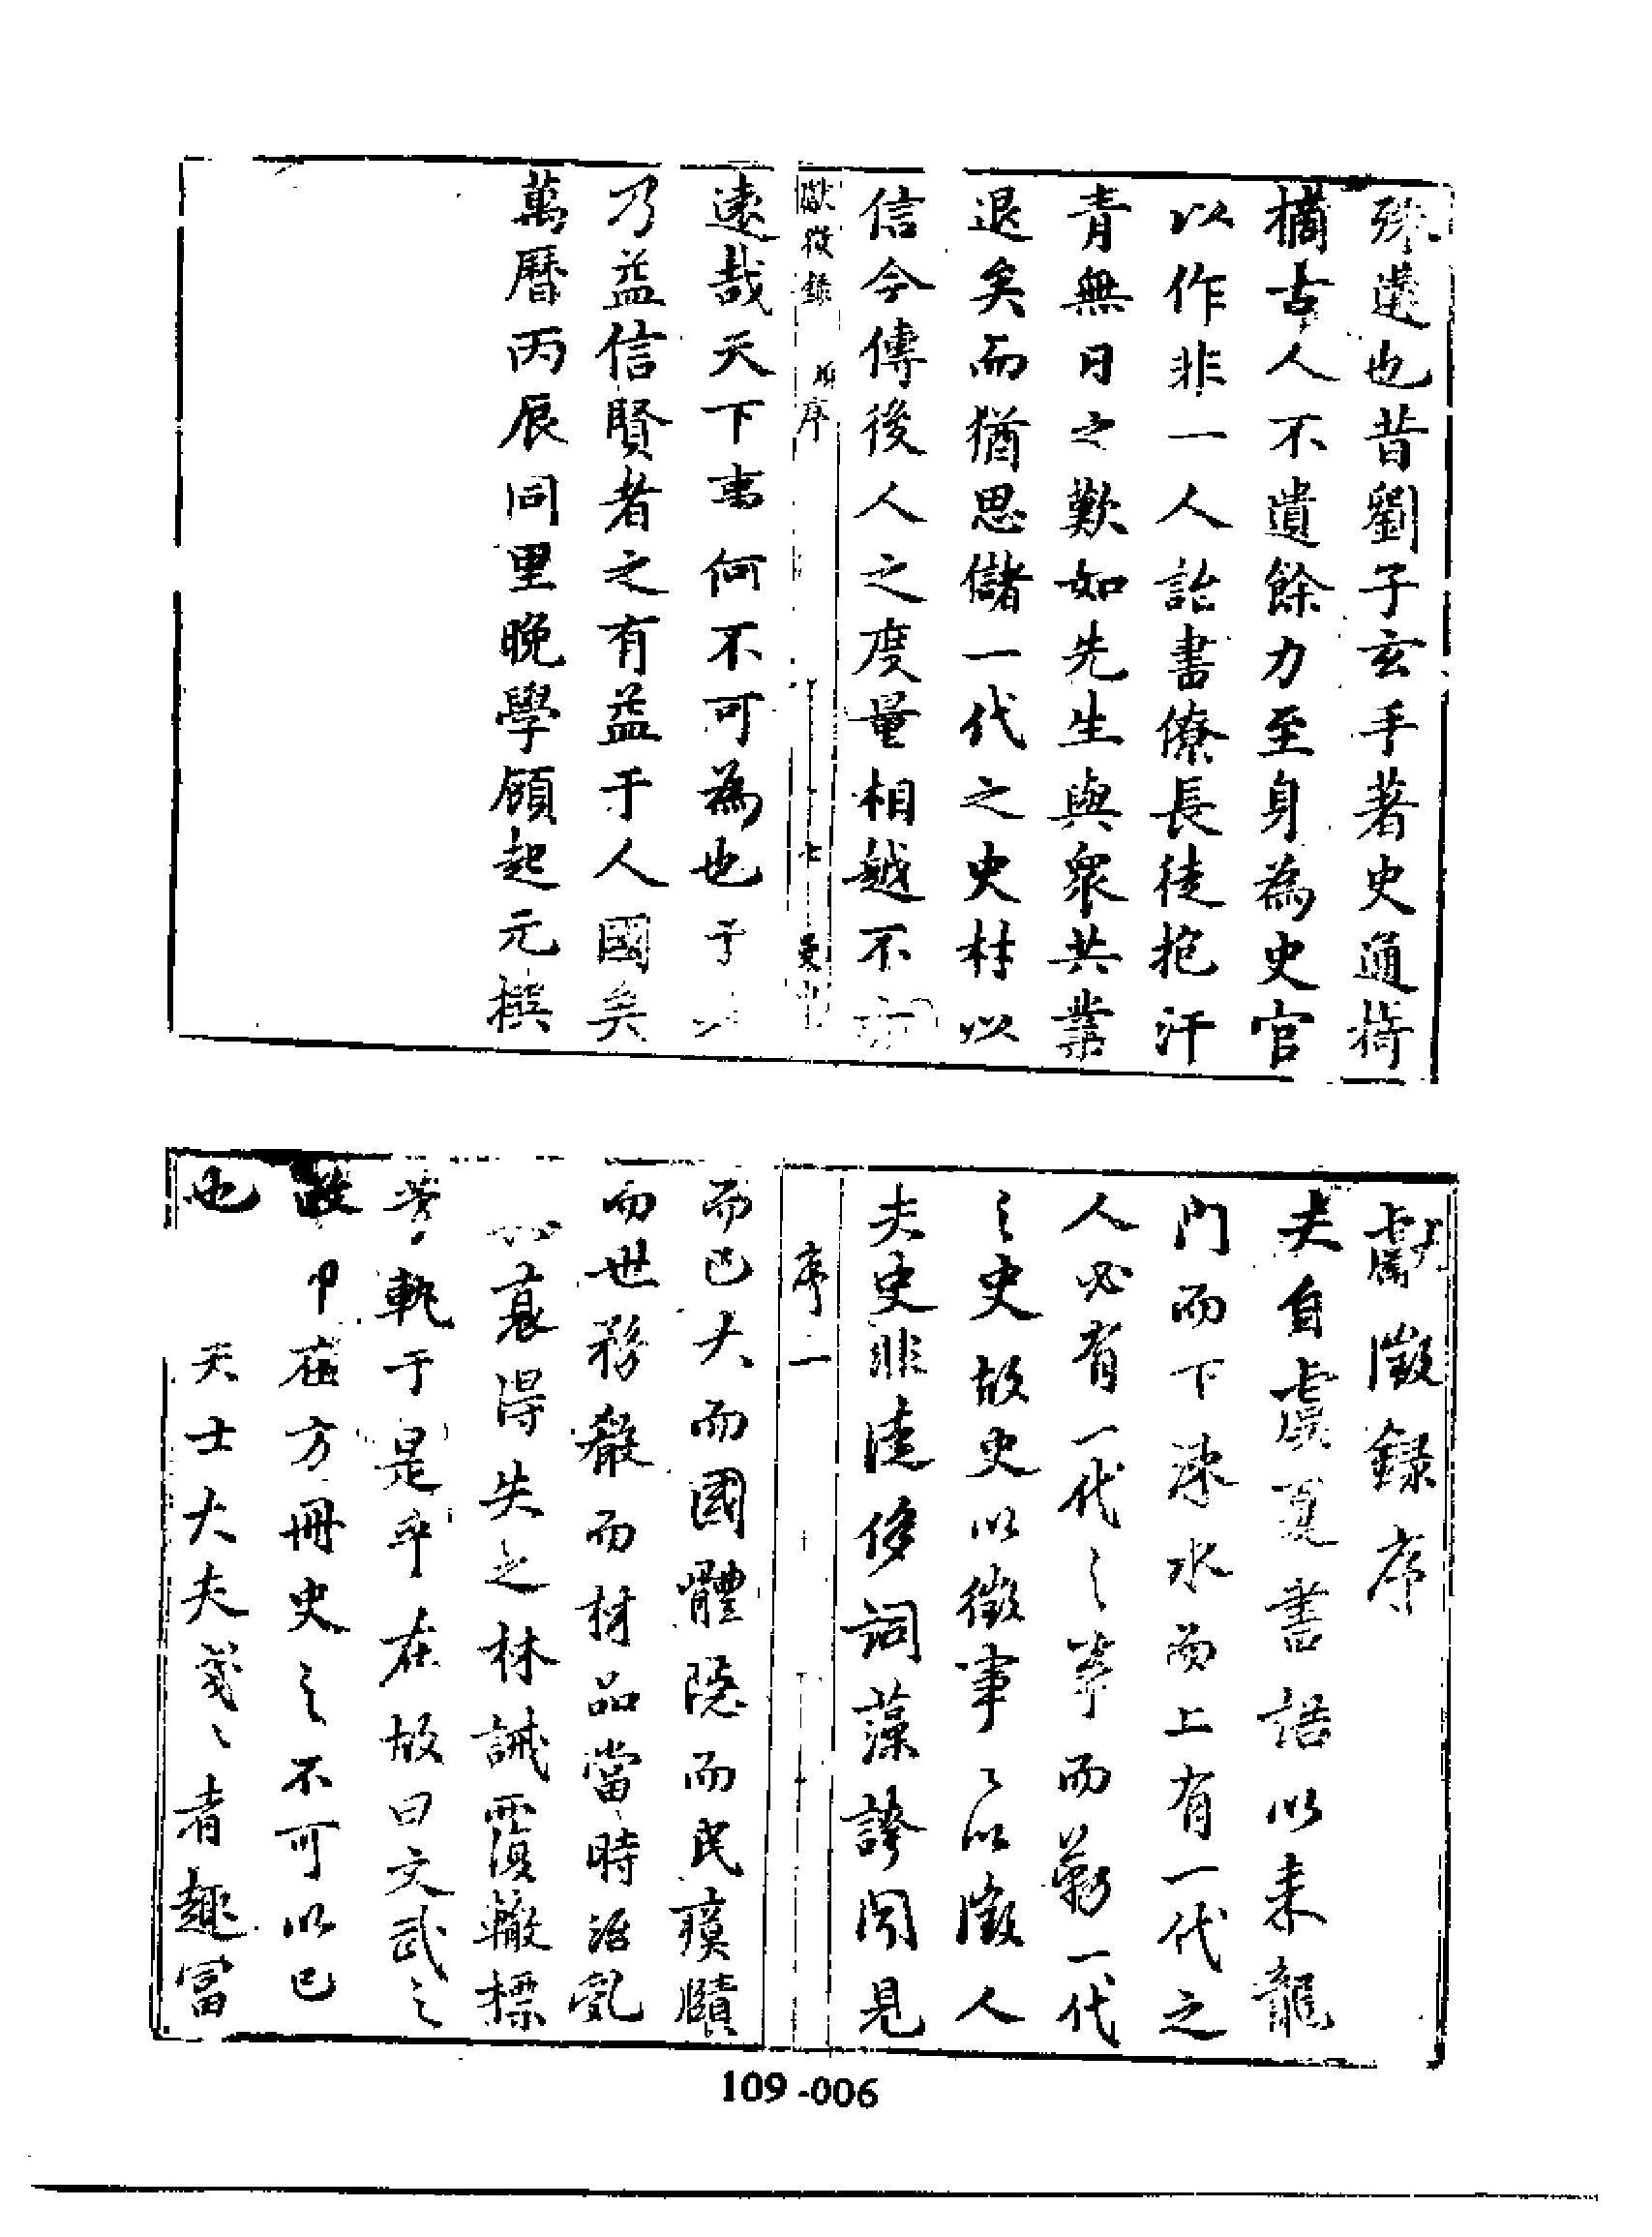 殊遠也昔劉子玄手著史通掎
摘古人不遺餘力至身為史官
以作非一人詒書僚長徒抱汗
青無日之歎如先生與衆共業
退矣而猶思儲一代之史材以
信今傳後人之度量相越不
獻徵錄 顧序 七
遠哉天下事何不可為也予
乃益信賢者之有益于人國矣
萬曆丙辰同里晚學顧起元撰
獻徵録序
夫自虞夏書語以來龍
門而下涑水而上有一代之
人必有一代之筆而勒一代
之史故史以徵事〻以徵人
夫史非徒侈詞藻誇聞見
序一
而已大而國體隱而民瘼賾
而世務殽而材品當時治亂
衰得失之林誡覆轍標
芳軌于是乎在故曰文武之
政 在方冊史之不可以已
也 天士大夫戔〻者趣富
109-006